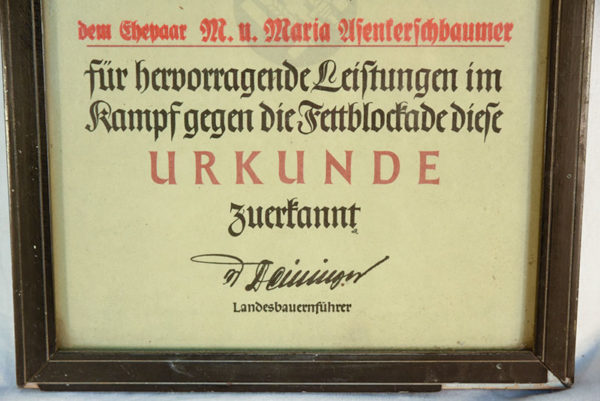 dem Ehepaar M. u. Maria Asenkerschbaumer
für hervorragende Leistungen im
Kampf gegen die Fettblockade diese
URKUNDE
zuerkannt
Deininger
Landesbauernführer